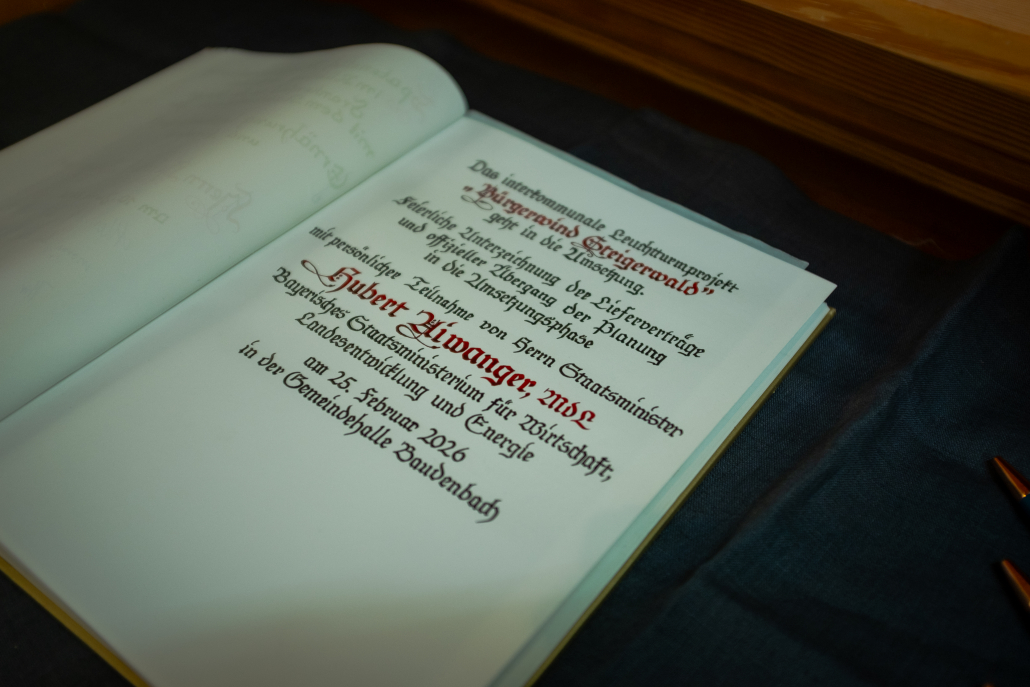 Das interkommunale Leuchtturmprojekt
„Bürgerwind Steigerwald”
geht in die Umsetzung.
Feierliche Unterzeichnung der Lieferverträge
und offizieller Übergang der Planung
in die Umsetzungsphase
mit persönlicher Teilnahme von Herrn Staatsminister
Hubert Aiwanger, MdL
Bayerisches Staatsministerium für Wirtschaft,
Landesentwicklung und Energie
am 25. Februar 2026
in der Gemeindehalle Baudenbach